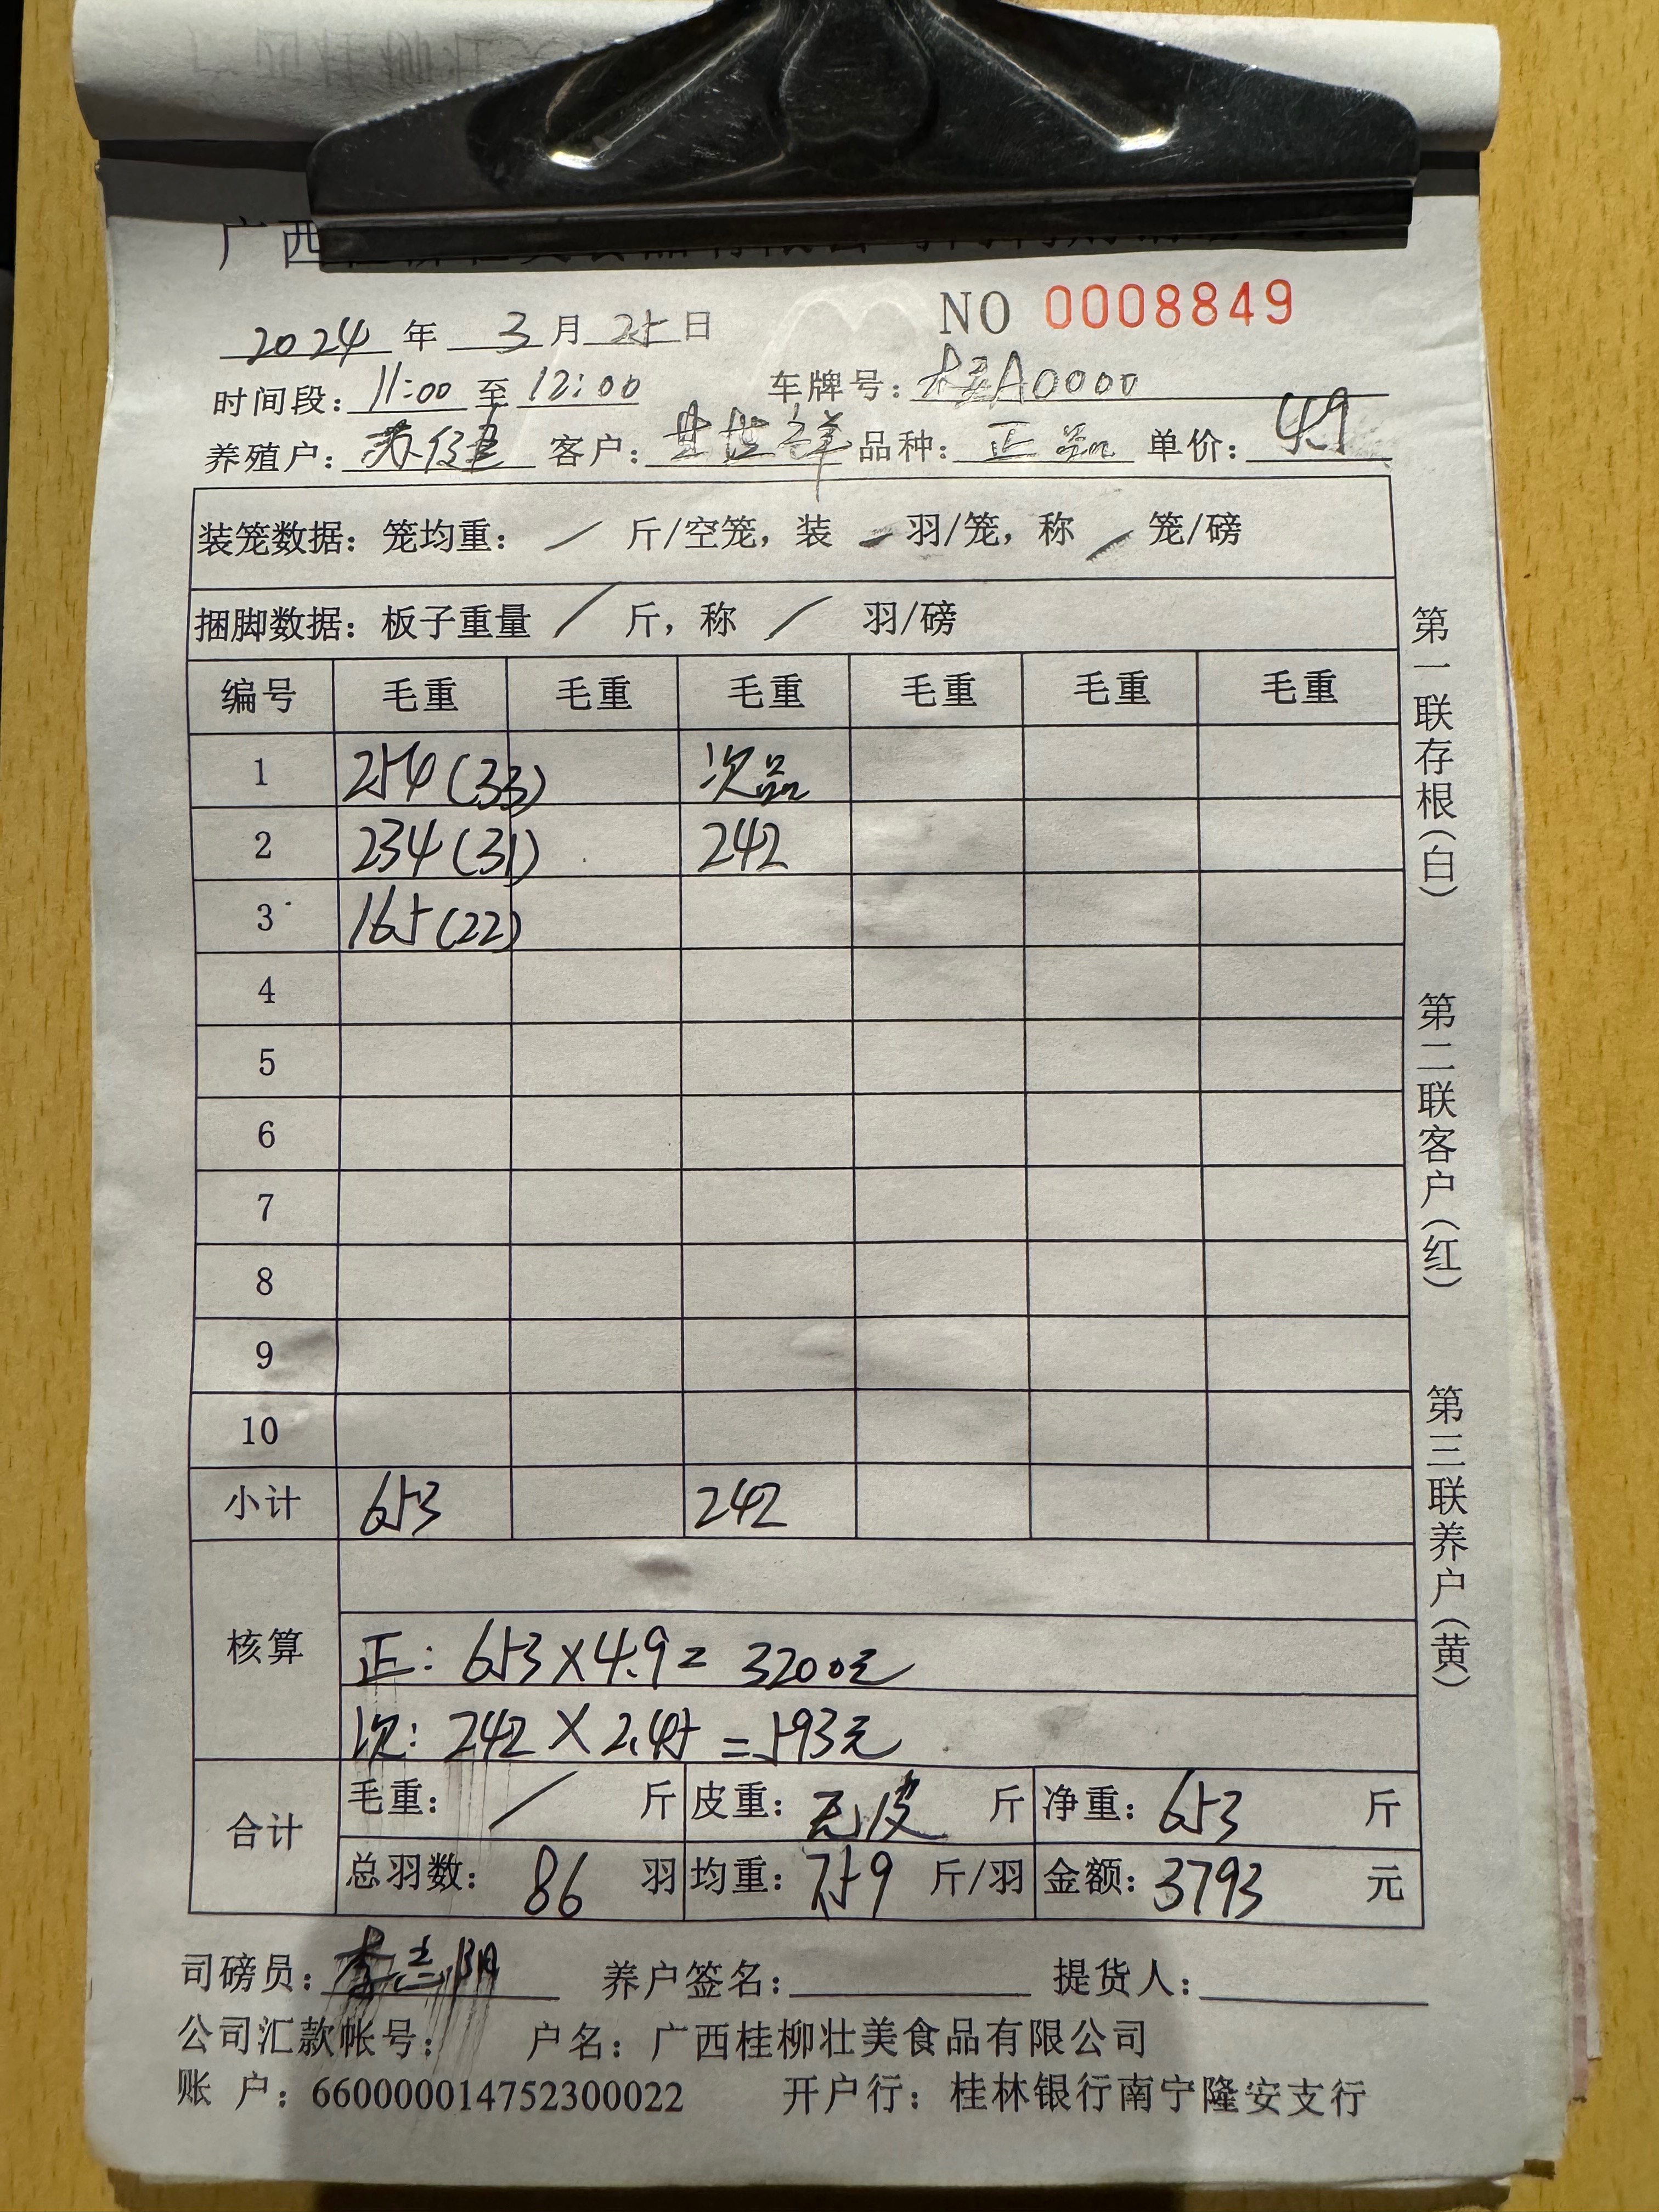 广西
NO 0008849
2024 年 3 月 25 日
时间段: 11:00 至 12:00 车牌号: 桂A0000
养殖户: 苏健 客户: 世祥 品种: 正品 单价: 4.9
装笼数据: 笼均重: / 斤/空笼, 装 / 羽/笼, 称 / 笼/磅
捆脚数据: 板子重量 / 斤, 称 / 羽/磅
编号 毛重 毛重 毛重 毛重 毛重 毛重
1 254(33) 次品
2 234(31) 242
3 165(22)
4
5
6
7
8
9
10
小计 653 242
核算
正: 653×4.9= 3200元
次: 242×2.45=593元
合计
毛重: / 斤 皮重: 无皮 斤 净重: 653 斤
总羽数: 86 羽 均重: 7.59 斤/羽 金额: 3793 元
司磅员: 李志阳 养户签名: 提货人:
公司汇款帐号: 户名: 广西桂柳壮美食品有限公司
账 户: 660000014752300022 开户行: 桂林银行南宁隆安支行
第一联存根(白)
第二联客户(红)
第三联养户(黄)